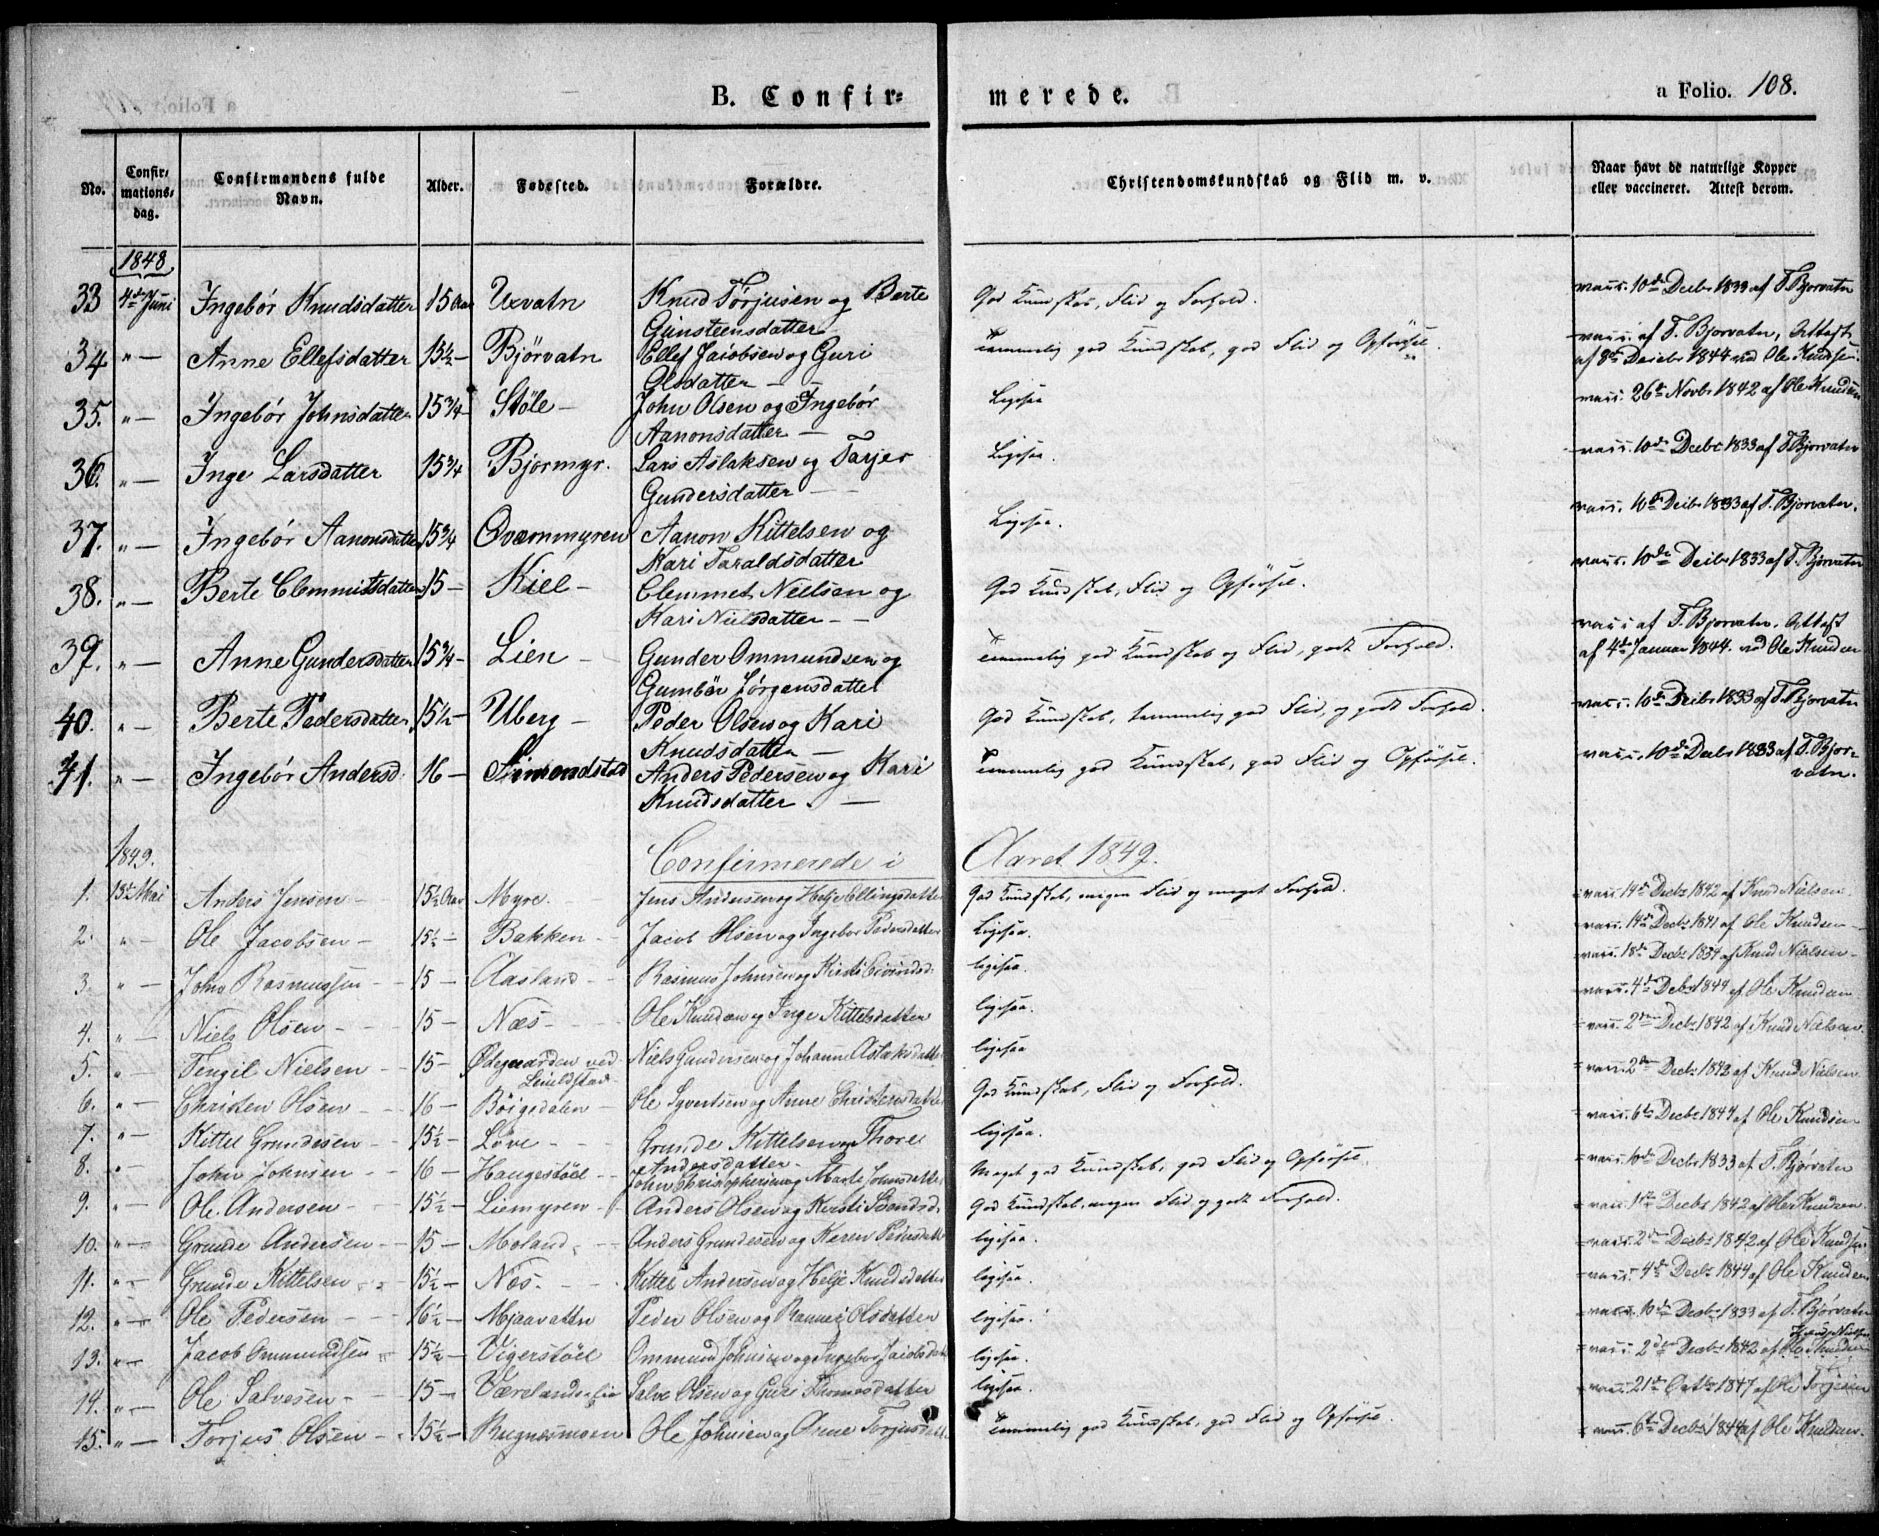 B. Confir=
merede.
a Folio. 108.
No. Confir=mations=dag. Confirmandens fulde Navn. Alder. Fødested. Forældre. Christendomskundskab og Flid m. v. Naar havt de naturlige Kopper eller vaccineret. Attest derom.
1848
33 4de Juni Ingebør Knudsdatter 15 Aar Uxvatn Knud Tørjusen og Berte God Kundskab, Flid og Forhold. vacc. 10de Decbr 1833 af T. Bjorvatn
Gunsteensdatter
34 "— Anne Ellefsdatter 15½— Bjørvatn Ellef Jacobsen og Guri Temmelig god Kundskab, god Flid og Opførsel. vacc. af T. Bjorvatn, Attest
Olsdatter — af 8de Decebr 1844 ved Ole Knudsen.
35. "— Ingebør Johnsdatter 15¾— Støle — John Olsen og Ingebør Ligesaa vacc. 26de Novbr 1842 af Ole Knudsen
Aanonsdatter —
36. "— Inge Larsdatter 15¾ Bjormyr. Lars Aslaksen og Tarjer Ligesaa. vacc. 10de Decbr 1833 af T. Bjorvatn
Gundersdatter —
37. "— Ingebør Aanonsdatter 15¾ Qvernmyren Aanon Kittelsen og Ligesaa. vacc. 10de Decbr 1833 af T. Bjorvatn.
Kari Taraldsdatter
38. "— Berte Clemmitsdatter 15— Kiel — Clemmet Nielsen og God Kundskab, Flid og Opførsel. vacc. 10de Decbr 1833 af T. Bjørvatn
Kari Nielsdatter —
39. "— Anne Gundersdatter 15¾— Lien — Gunder Ommundsen og Temmelig god Kundskab og Flid, godt Forhold. vacc. af T. Bjorvatn. Attest
Gumbør Jørgensdatter af 4de Januar 1844. ved Ole Knudsen
40. "— Berte Pedersdatter 15½— Uberg — Peder Olsen og Kari God Kundskab, temmelig god Flid, og godt Forhold. vacc. 10de Decbr 1833 af T. Bjorvatn
Knudsdatter —
41. "— Ingebør Andersd. 16— Simonstad Anders Pedersen og Kari Temmelig god Kundskab, god Flid og Opførsel. vacc. 10de Decbr 1833 af T. Bjor-
Knudsdatter. — vatn.
1849.
Confirmerede i Aaret 1849.
1. 13de Mai Anders Jensen — 15½ Aar Myre. Jens Andersen og Helje Ellingsdatter God Kundskab, megen Flid og meget Forhold. vacc. 14de Decbr 1842 af Knud Nielsen
2. "— Ole Jacobsen — 15½— Bakken — Jacob Olsen og Ingebor Pedersdatter Ligesaa. vacc. 14de Decbr 1841 af Ole Knudsen —
3. "— John Rasmussen — 15— Aasland — Rasmus Johnsen og Kirsti Eivindsd. ligesaa. vacc. 18de Decbr 1837 af Knud Nielsen —
4. "— Niels Olsen — 15— Næs — Ole Knudsen og Inge Kittelsdatter ligesaa. vacc. 4de Decbr 1844 af Ole Knudsen
5. "— Tengil Nielsen — 15— Ødegaarden ved Niels Gundersen og Johanne Aslaksdatter ligesaa vacc. 2den Decbr 1842 af Knud Nielsen.
6. "— Christen Olsen — 16— Bøigedalen — Ole Syvertsen og Anne Christensdatter God Kundskab, Flid og Forhold. vacc. 2den Decbr 1842 af Knud Nielsen
7. "— Kittel Grundesen — 15½— Løve — Grunde Kittelsen og Thore ligesaa. vacc. 6te Decbr 1844 af Ole Knudsen
Andersdatter —
8. "— John Johnsen — 16 Haugestøel — John Christophersen og Marte Johnsdatter Meget god Kundskab, god Flid og Opførsel. vacc. 10de Decbr 1833 af T. Bjørvatn
9. "— Ole Andersen — 15½— Liemyren — Anders Olsen og Kirsti Bendsd. God Kundskab, megen Flid og godt Forhold. vacc. 1ste Decbr 1842 af Ole Knudsen.
10. "— Grunde Andersen — 15— Moland — Anders Grundesen og Karen Pedersdatter ligesaa. vacc. 2den Decbr 1842 af Ole Knudsen
11. "— Grunde Kittelsen 15½— Næs — Kittel Andersen og Helje Knudsdatter ligesaa. vacc. 4de Decbr 1844 af Ole Knudsen
12. "— Ole Pedersen — 16½— Mjaavattn Peder Olsen og Ranni Olsdatter ligesaa. vacc. 10de Decbr 1833 af T. Bjørvatn
13. "— Jacob Ommundsen 15½— Vigerstøel Ommund Johnsen og Ingebor Jacobsdatter ligesaa. vacc. 2den Decbr 1842 af Knud Nielsen
14. "— Ole Salvesen — 15— Værelands Salve Olsen og Guri Thomasdatter ligesaa. vacc. 21de Octbr 1847 af Ole Torjusen
15. "— Torjus Olsen — 15½— Rugnesmoen Ole Johnsen og Anne Torjusdatter Temmelig god Kundskab, god Flid og Opførsel. vacc. 6te Decbr 1844 af Ole Knudsen.